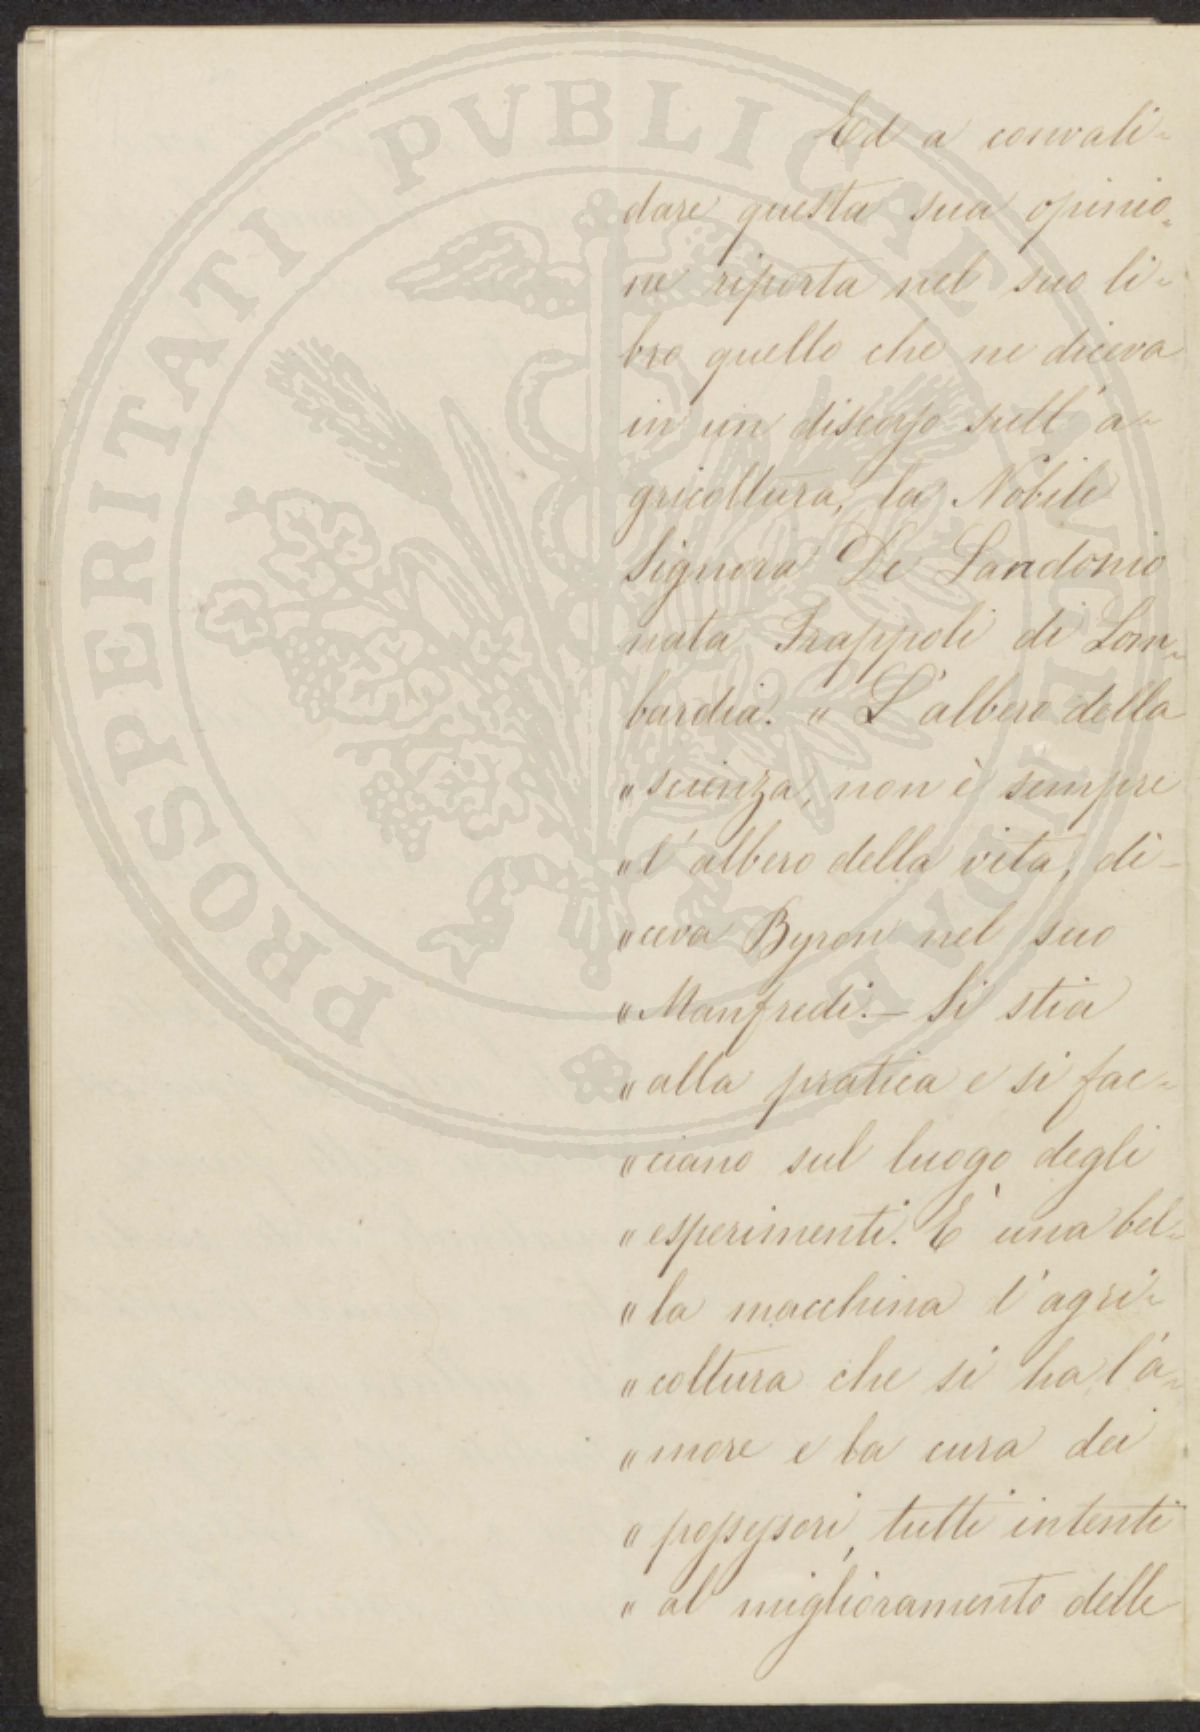 Ed a convali-
dare questa sua opinio-
ne riporta nel suo li-
bro quello che ne diceva
in un discorso sull' a-
gricoltura, la Nobile
Signora De Landonio
nata Frappoli di Lom-
bardia. " L'albero della
" scienza, non è sempre
" l' albero della vita, di-
" ceva Byron nel suo
" Manfredi. — Si stia
" alla pratica e si fac-
" ciano sul luogo degli
" esperimenti. E' una bel-
" la macchina l' agri-
" coltura che si ha l'a-
" more e la cura dei
" possessori, tutti intenti
" al miglioramento delle
PROSPERITATI PVBLICAE AVGENDAE